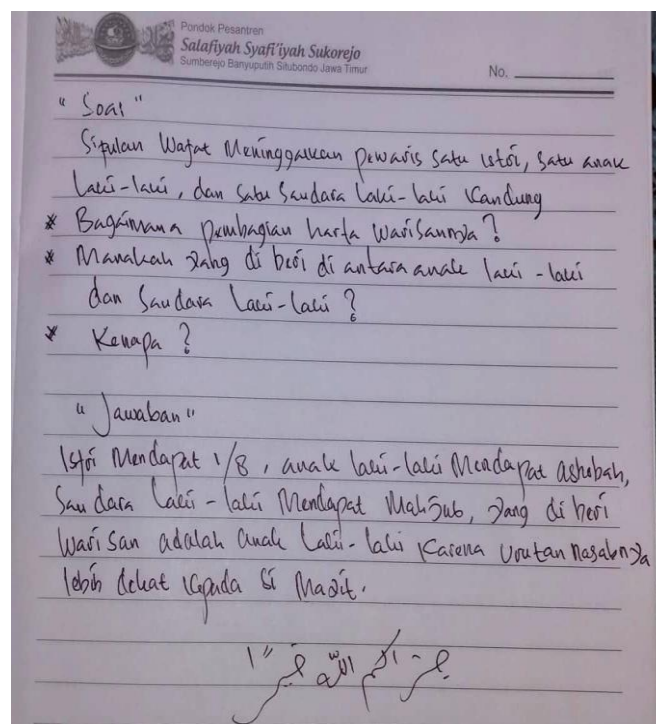 Pondok Pesantren
Salafiyah Syafi'iyah Sukorejo
Sumberejo Banyuputih Situbondo Jawa Timur
No.
"Soal"
Sipulan Wafat Meninggalkan pewaris satu istri, satu anak
laki-laki, dan satu Saudara laki-laki Kandung
* Bagaimana pembagian harta Warisannya?
* Manakah yang di beri di antara anak laki-laki
dan Saudara laki-laki?
* Kenapa?
"Jawaban"
Istri Mendapat 1/8, anak laki-laki Mendapat ashobah,
Saudara laki-laki Mendapat Mahjub, yang di beri
Warisan adalah anak laki-laki Karena urutan nasabnya
lebih dekat kepada si Mayit.
جزاكم الله خيرا